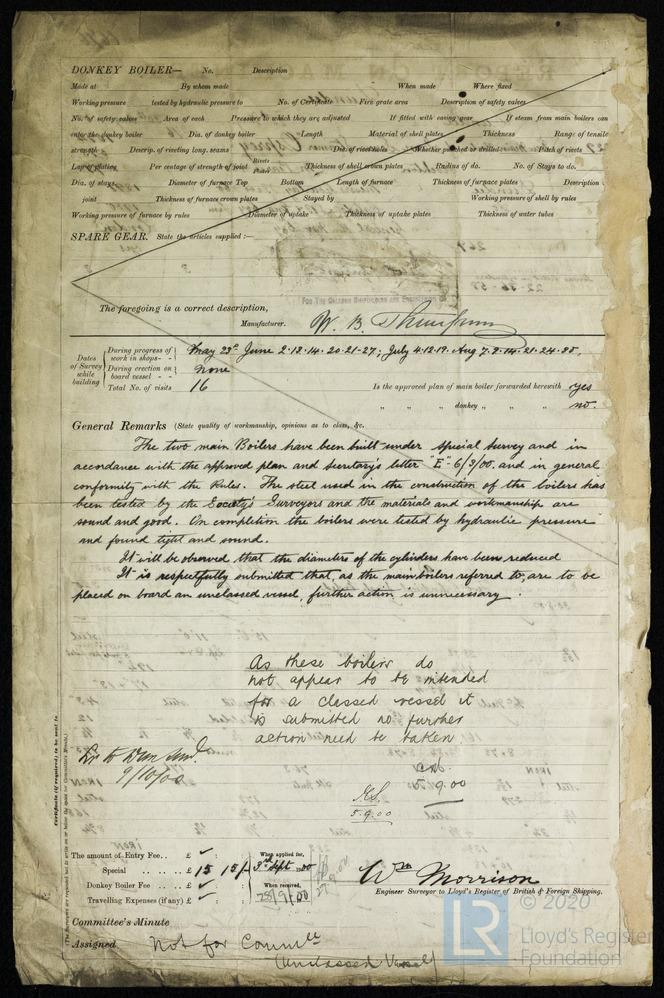 DONKEY BOILER— No. Description
Made at By whom made When made Where fixed
Working pressure tested by hydraulic pressure to No. of Certificate Fire grate area Description of safety valves
No. of safety valves Area of each Pressure to which they are adjusted If fitted with easing gear If steam from main boilers can
enter the donkey boiler Dia. of donkey boiler Length Material of shell plates Thickness Range of tensile
strength Descrip. of riveting long. seams Dia. of rivet holes Whether punched or drilled Pitch of rivets
Lap of plating Per centage of strength of joint Rivets Plates Thickness of shell crown plates Radius of do. No. of Stays to do.
Dia. of stays Diameter of furnace Top Bottom Length of furnace Thickness of furnace plates Description of
joint Thickness of furnace crown plates Stayed by Working pressure of shell by rules
Working pressure of furnace by rules Diameter of uptake Thickness of uptake plates Thickness of water tubes
SPARE GEAR. State the articles supplied:—
The foregoing is a correct description,
Manufacturer. W. B. Thompson
Dates of Survey while building
During progress of work in shops - - May 23rd June 2·13·14·20·21·27; July 4·12·19· Aug 7·9·14·21·24·30,
During erection on board vessel - - None
Total No. of visits 16
Is the approved plan of main boiler forwarded herewith yes
" " donkey " " " no.
General Remarks (State quality of workmanship, opinions as to class, &c.
The two main Boilers have been built under special survey and in
accordance with the approved plan and secretary's letter "E" 6/3/00. and in general
conformity with the Rules. The steel used in the construction of the boilers has
been tested by the Society's Surveyors and the materials and workmanship are
sound and good. On completion the boilers were tested by hydraulic pressure
and found tight and sound.
It will be observed that the diameters of the cylinders have been reduced
It is respectfully submitted that, as the main boilers referred to, are to be
placed on board an unclassed vessel, further action is unnecessary.
As these boilers do
not appear to be intended
for a classed vessel it
is submitted no further
action need be taken
5.9.00
5.9.00
9/10/00
Certificate (if required) to be sent to
The amount of Entry Fee . . £
Special . . . . . £ 15 15/-
Donkey Boiler Fee . . . £
Travelling Expenses (if any) £
When applied for,
3rd Sept 1900
When received,
28/9/00
Wm Morrison
Engineer Surveyor to Lloyd's Register of British & Foreign Shipping.
Committee's Minute
Assigned Not for Commee
(Unclassed Vessel)
© 2020
LR
Lloyd's Register
Foundation